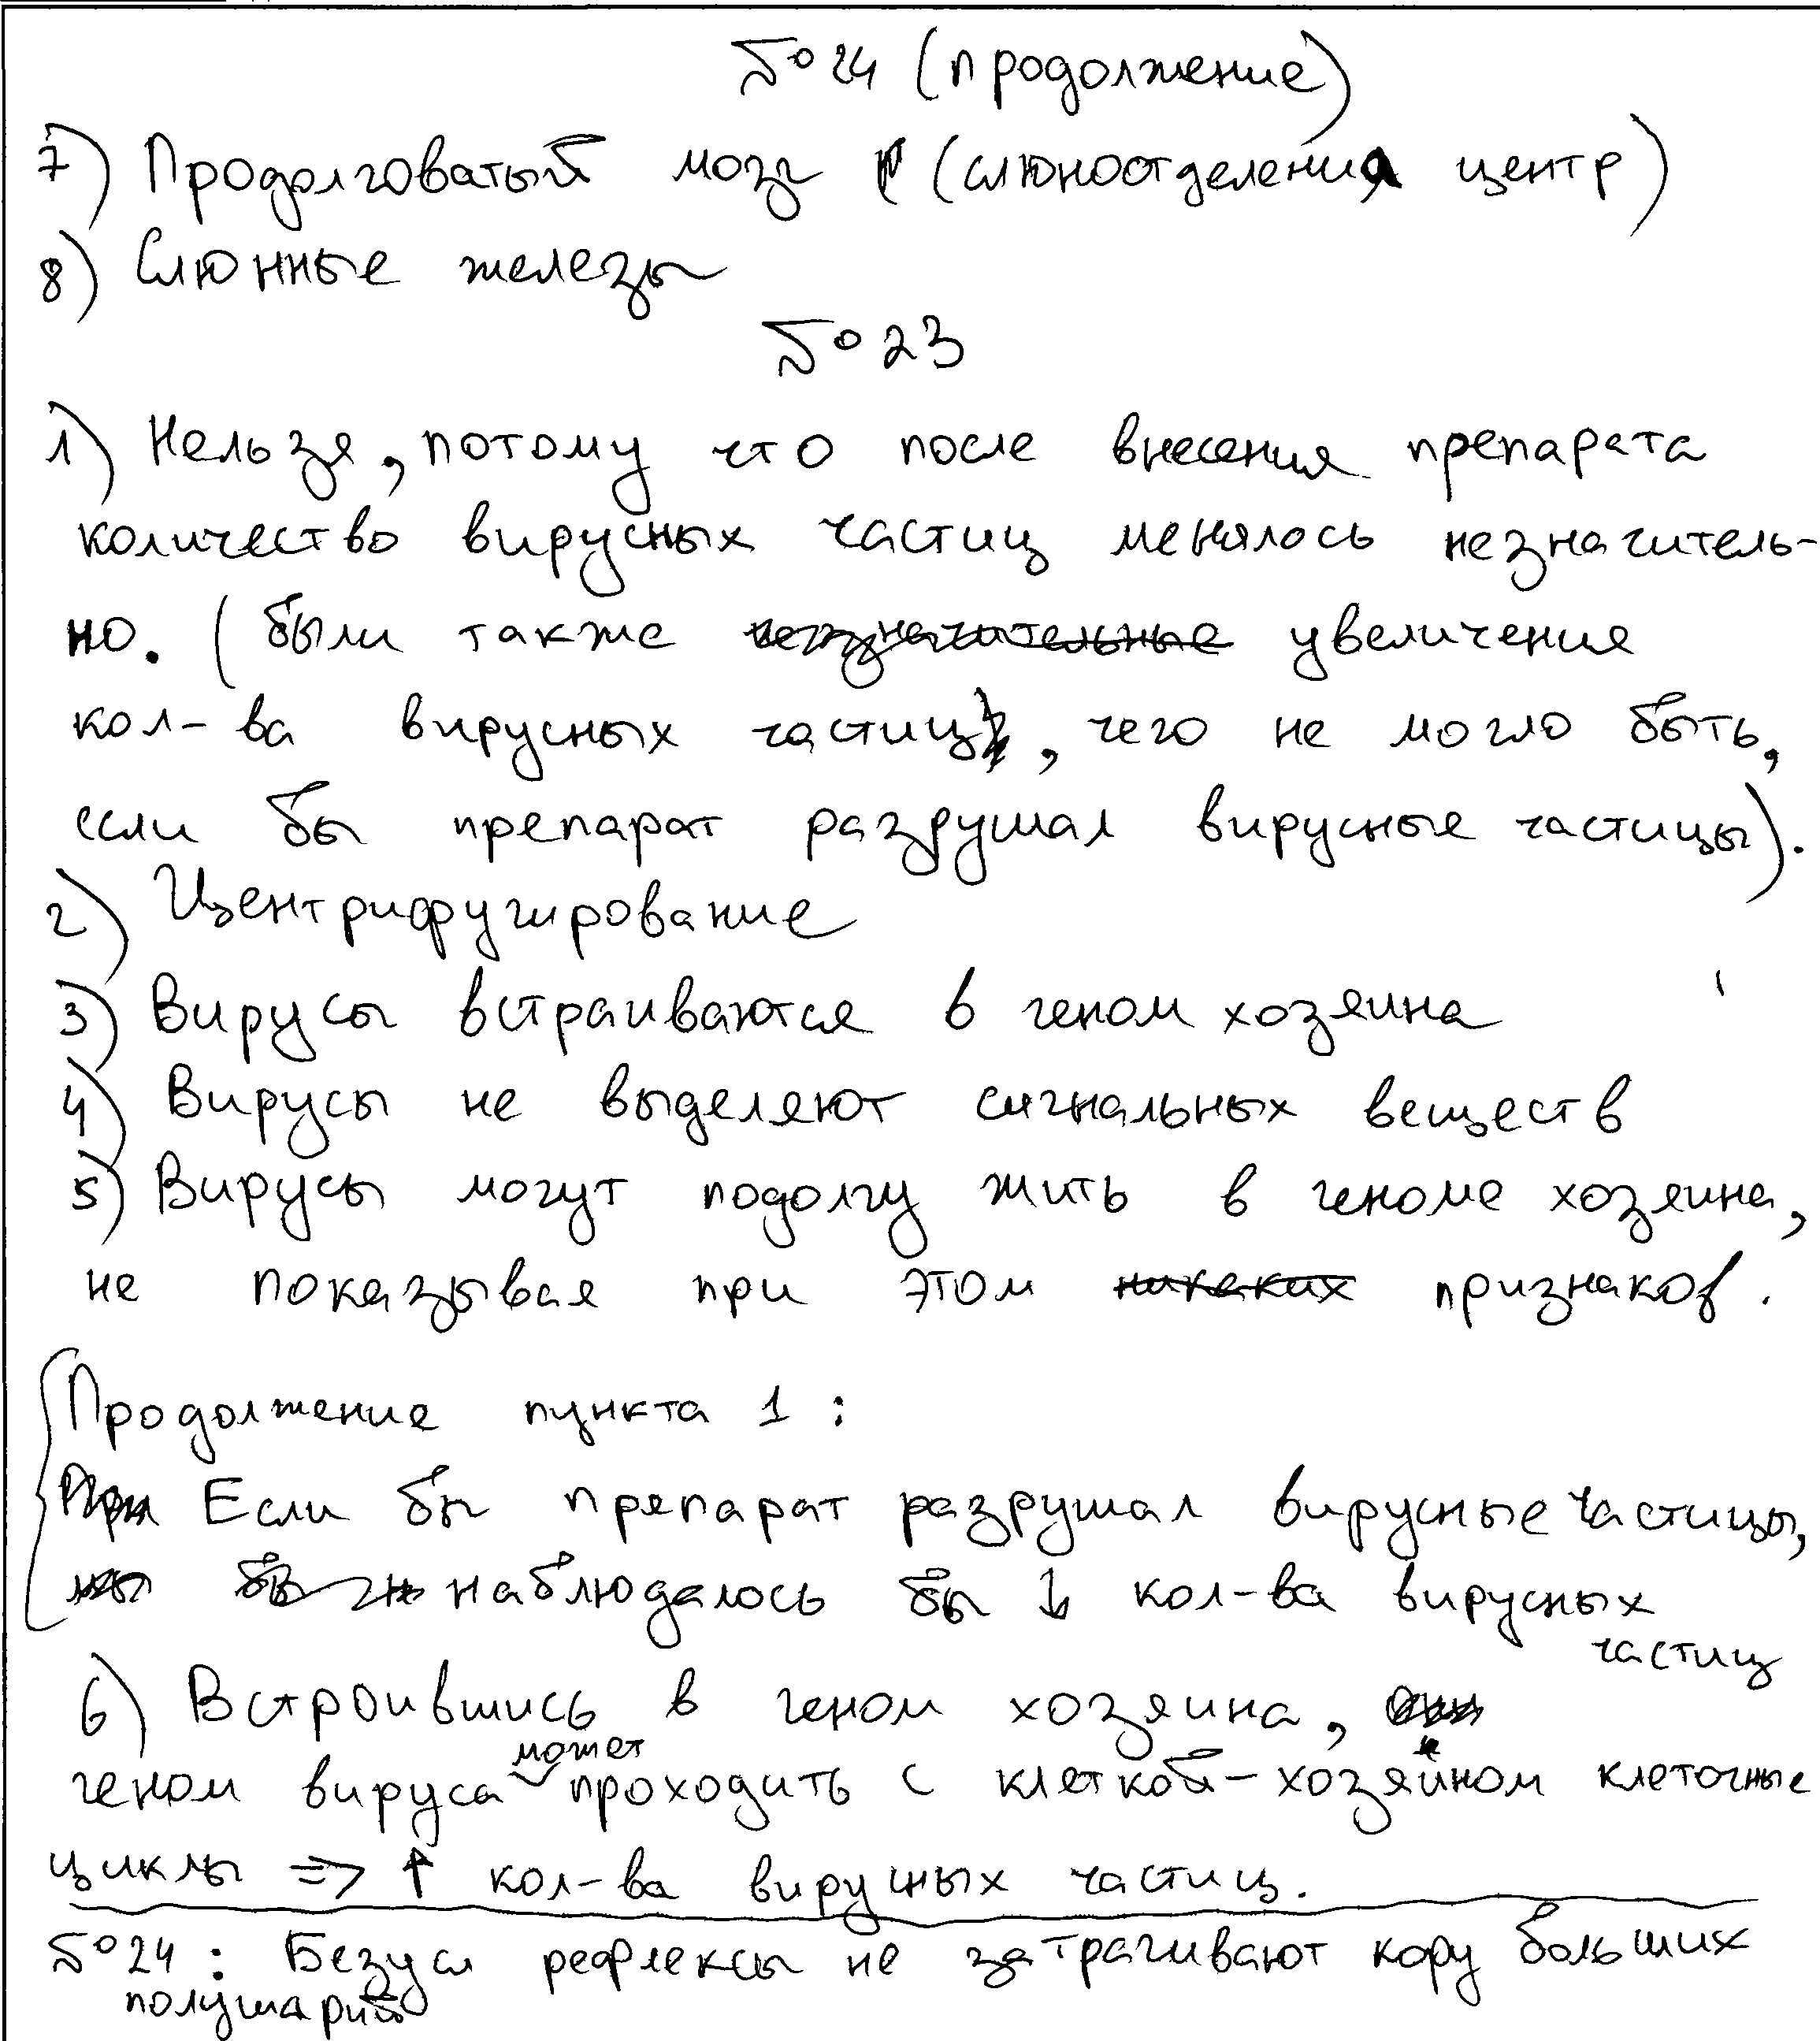 №24 (продолжение)
7) Продолговатый мозг (слюноотделения центр)
8) Слюнные железы
№23
1) Нельзя, потому что после внесения препарата
количество вирусных частиц менялось незначитель-
но. (были также незначительные увеличения
кол-ва вирусных частиц, чего не могло быть,
если бы препарат разрушал вирусные частицы).
2) Центрифугирование
3) Вирусы встраиваются в геном хозяина
4) Вирусы не выделяют сигнальных веществ
5) Вирусы могут подолгу жить в геноме хозяина,
не показывая при этом никаких признаков.
Продолжение пункта 1:
При Если бы препарат разрушал вирусные частицы,
наблюдалось бы ↓ кол-ва вирусных
частиц
6) Встроившись в геном хозяина, они
геном вируса может проходить с клеткой-хозяином клеточные
циклы => ↑ кол-ва вирусных частиц.
№24: Безусл рефлексы не затрагивают кору больших
полушарий